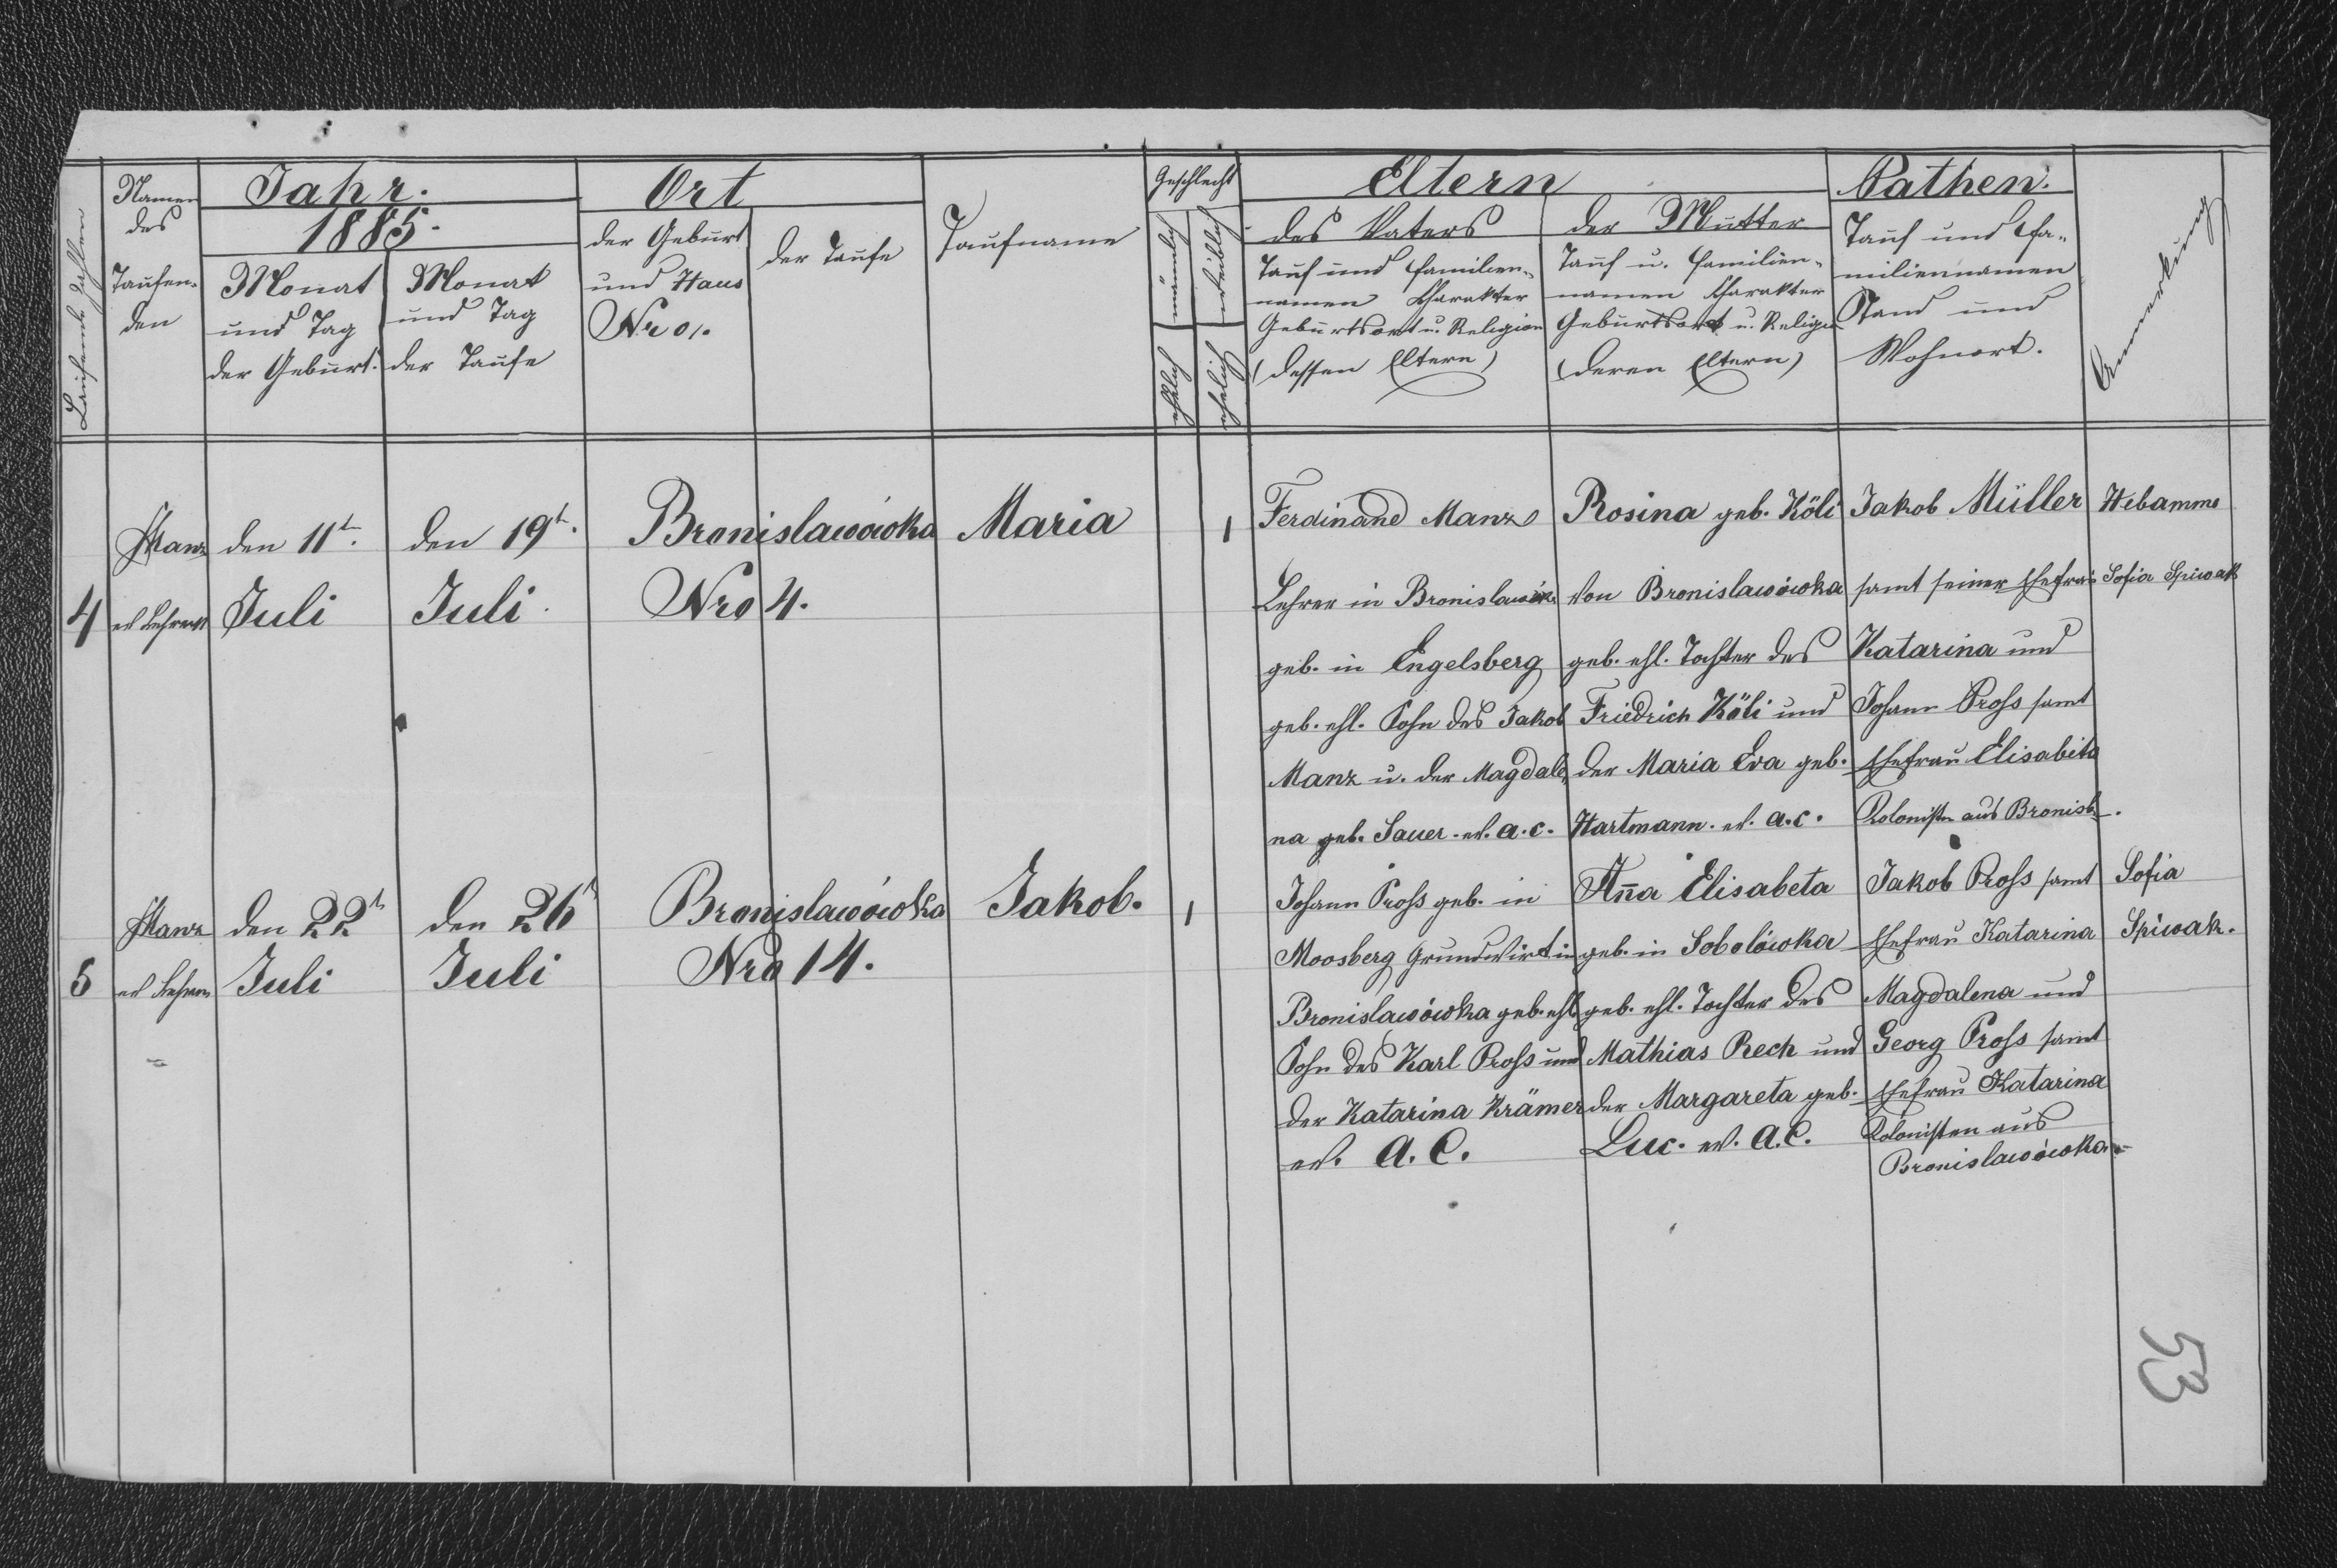 Laufende Zahlen
Namen
des
Taufen-
den
Jahr.
1885.
Monat
und Tag
der Geburt.
Monat
und Tag
der Taufe
Ort
der Geburt
und Haus
Nro.
der Taufe
Taufname
Geschlecht
männlich
weiblich
ehelich
ehelich
Eltern
des Vaters
Tauf und Familien-
namen Charakter
Geburtsort u. Religion
(dessen Eltern)
der Mutter
Tauf u. Familien-
namen Charakter
Geburtsort u. Religion
(deren Eltern)
Pathen.
Tauf und Fa-
miliennamen
Stand und
Wohnort.
Anmerkung
4
Manz
ev Lehrer
den 11t.
Juli
den 19t.
Juli.
Bronislawówka
Nro 4.
Maria
1
Ferdinand Manz
Lehrer in Bronislawówk.
geb. in Engelsberg
geb. ehl. Sohn des Jakob
Manz u. der Magdale,
na geb. Sauer. ev. a. c.
Rosina geb. Köli
von Bronislawówka
geb. ehl. Tochter des
Friedrich Köli und
der Maria Eva geb.
Hartmann. ev. a. c.
Jakob Müller
samt seiner Ehefrau
Katarina und
Johann Pross samt
Ehefrau Elisabeta
Kolonisten aus Bronisl.
Hebamme
Sofia Spiwak
5
Manz
ev Lehrer
den 22t
Juli
den 26t
Juli
Bronislawówka
Nro 14.
Jakob.
1
Johann Pross geb. in
Moosberg Grundwirt in
Bronislawówka geb. ehl
Sohn des Karl Pross und
der Katarina Krämer
ev. A. C.
Ana Elisabeta
geb. in Sobolówka
geb. ehl. Tochter des
Mathias Rech und
der Margareta geb.
Luc. ev. A. C.
Jakob Pross samt
Ehefrau Katarina
Magdalena und
Georg Pross samt
Ehefrau Katarina
Kolonisten aus
Bronislawówka.
Sofia
Spiwak.
53